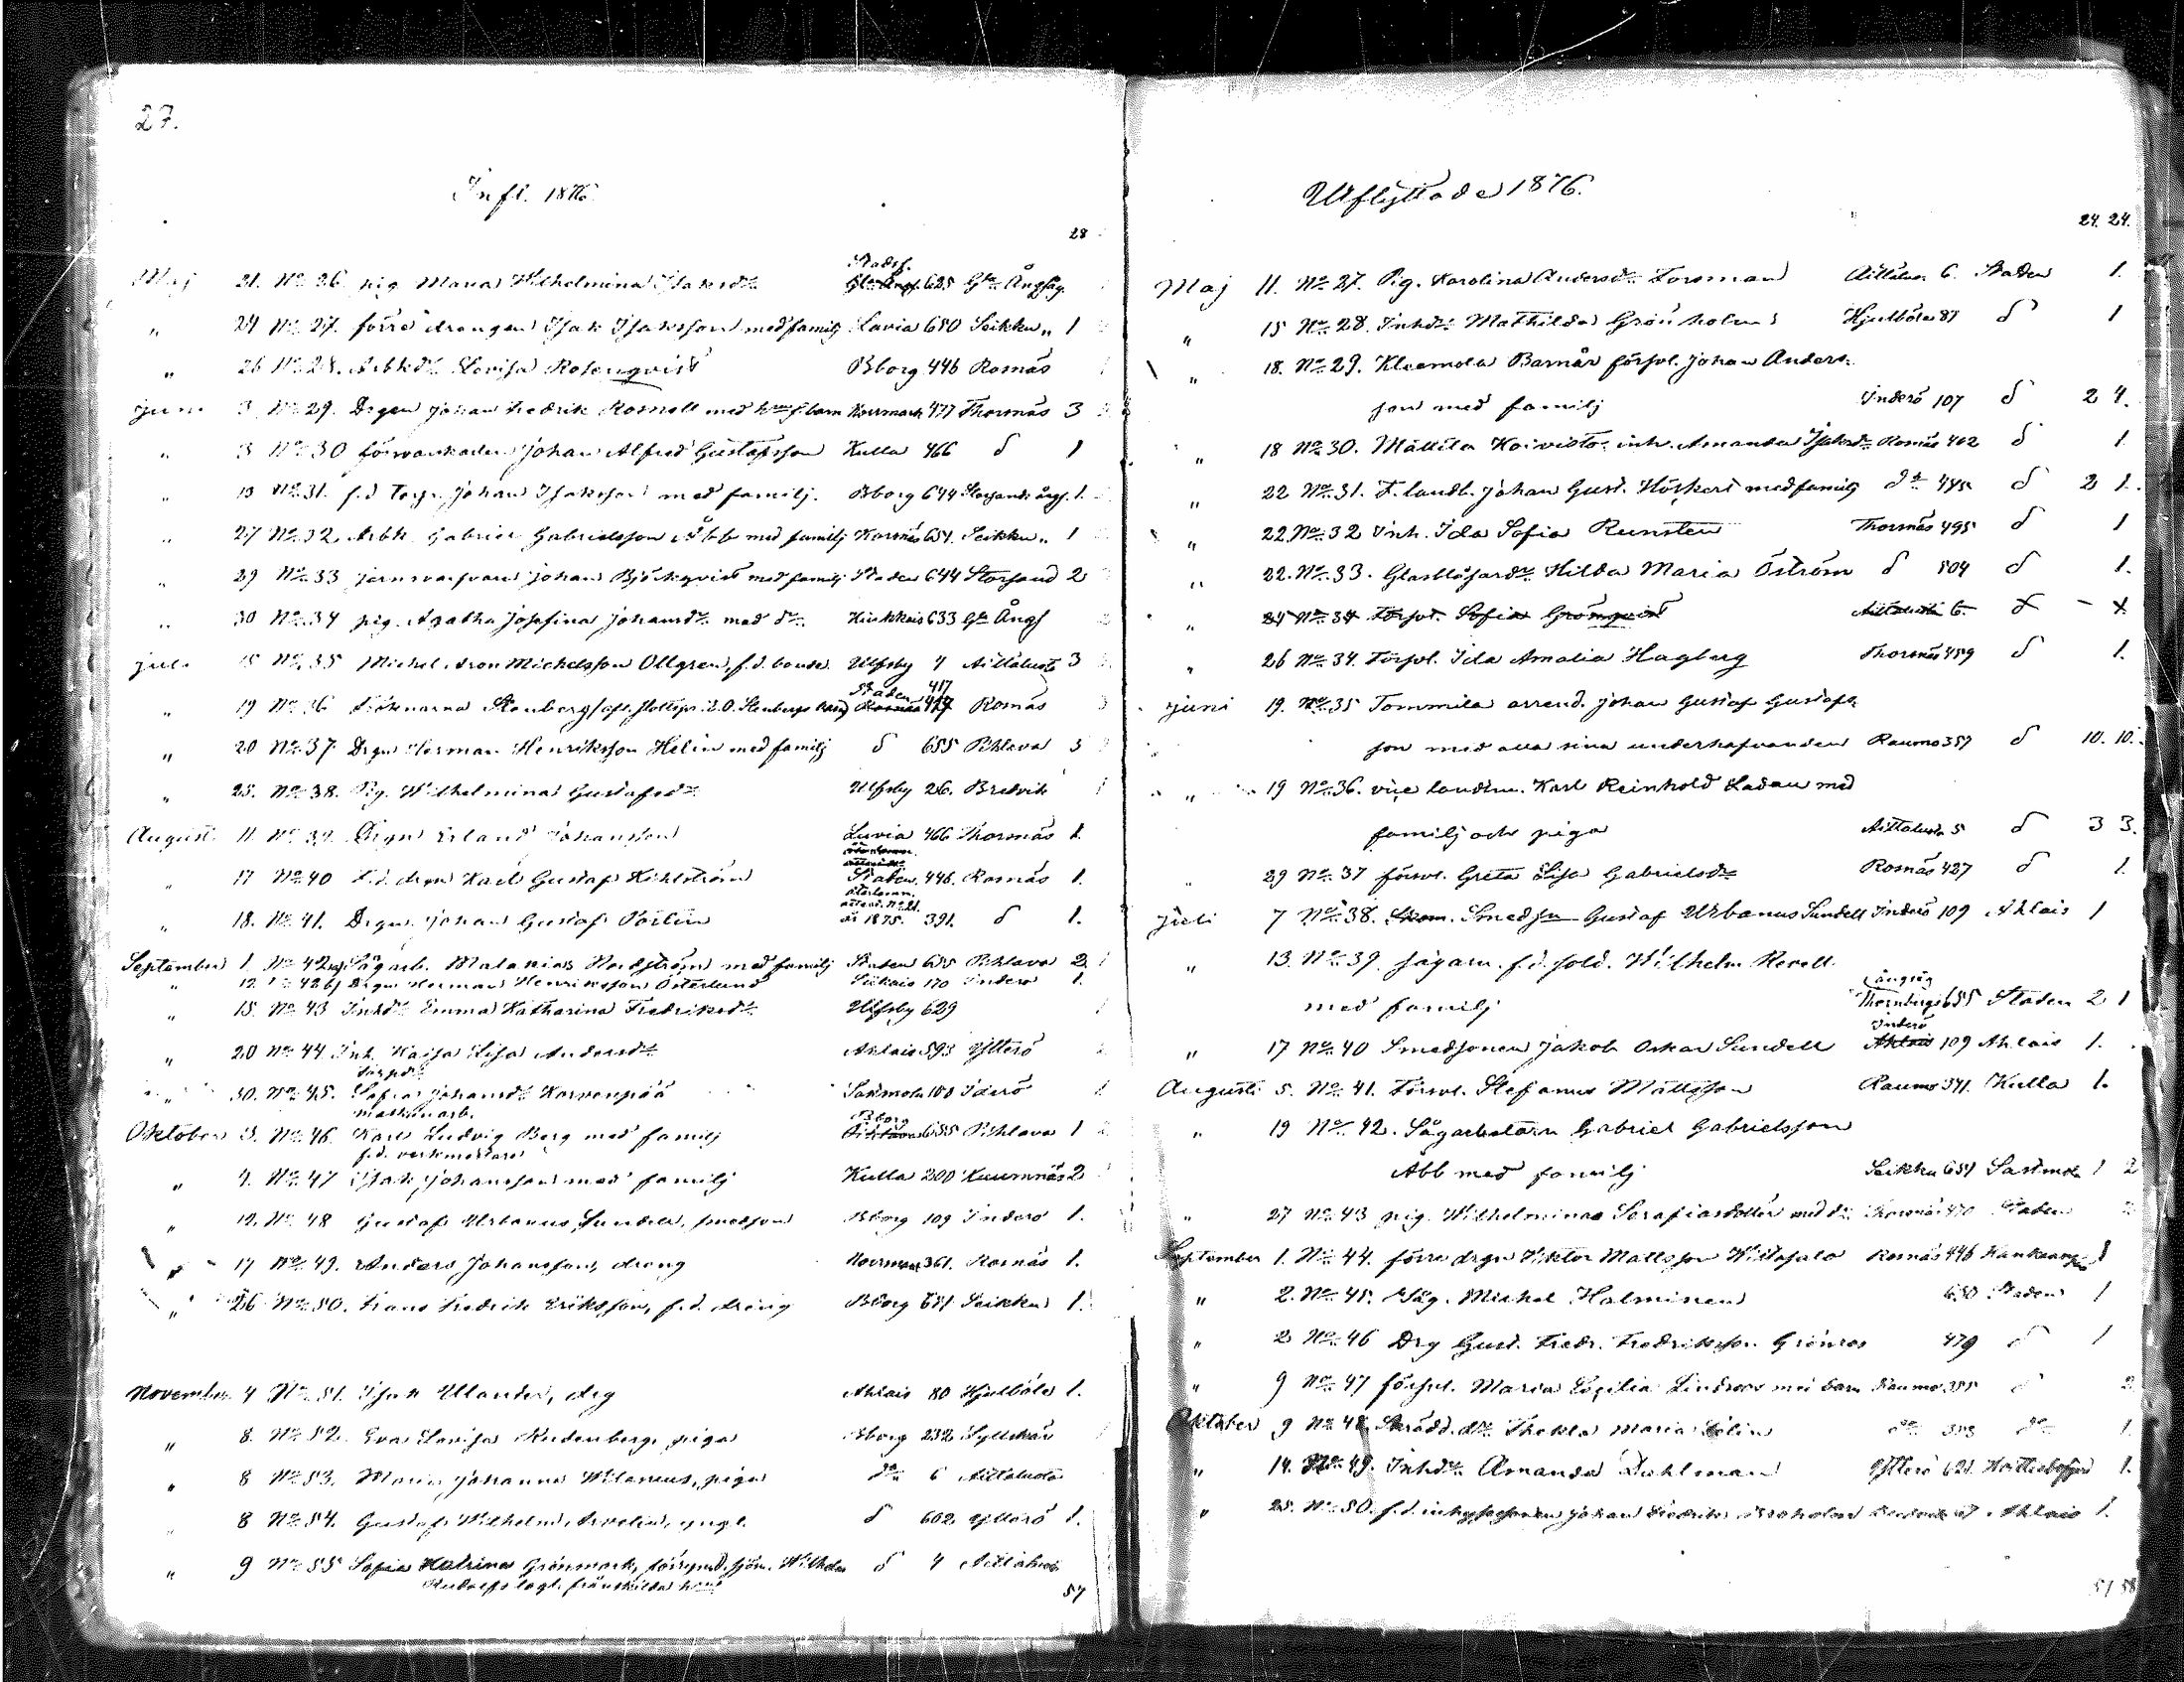 27.
Infl. 1876.
28
Stadsf.
Maj 21. No 26. pig. Maria Wilhelmina Isaksdr 625 Gla Ångsåg.
" 24 No 27. förre drengen Isak Isaksson med familj Lavia 650 Seikku" 1
" 26 No 28. Arbkdr Lovisa Rosenqvist Bborg 446 Rosnäs
Juni 3 No 29. Drgen Johan Fredrik Rosnell med hustru f barn Norrmark 477 Thorsnäs 3
" 3 No 30 försvarskarlen Johan Alfred Gustafsson Kulla 466 d 1
" 13 No 31. f.d Torp. Johan Isaksson med familj. Bborg 644 Storsands ångs. 1.
" 27 No 32. Arbk. Gabriel Gabrielsson Åbb med familj 651. Seikku" 1
" 29 No 33 jernsvarfvaren Johan Björkqvist med familj Staden 644 Storsand 2
" 30 No 34 pig. Agatha Josefina Johansdr med dr. 633 Gla Ångs
Juli 15 No 35 Michel Aron Michelsson Ollgren, f.d. bonde Ulfsby 4 Aittaluoto 3
Staden 417
" 19 No 36 Stenberg Rosnäs
" 20 No 37. Drgn Herman Henriksson Helin med familj d 655 Pihlava 3
" 25. No 38. Pig. Wilhelmina Gustafsdr Ulfsby 26. Bredvik 1
Augusti 11. No 39. Drgn Erland Johansson Luvia 466 Thorsnäs 1.
" 17 No 40 F.d. drgn Karl Gustaf Kihlström Staden 446. Rosnäs 1.
" 18. No 41. Drgn. Johan Gustaf Portin år 1875. 391. d 1.
September 1 No 42 a) Sågarb. Malakias Nordström med familj Staden 655 Pihlava 2
" 12. No 42 b) Drgn Herman Henriksson Österlund 170 Inderö 1.
" 15. No 43 Inhdr Emma Katharina Fredriksdr Ulfsby 629
" 20 No 44 Inh. Kajsa Lisa Andersdr Ahlais 593 Ytterö
" 30. No 45. Sofia Johansdr Korvenpää Sastmola 100 Iderö
Oktober 3. No 46. Karl Ludvig Berg med familj Bborg 655 Pihlava 1
f.d. verkmästare
" 4. No 47 Isak Johansson med familj Kulla 200 Kuumnäs 2
" 12. No 48 Gustaf Urbanus Sundell, smedson Bborg 109 Inderö 1.
" 17 No 49. Anders Johansson, dreng Norrmark 361. Rosnäs 1.
" 26 No 50. Frans Fredrik Eriksson, f.d. dreng Bborg 651 Seikku 1.
November 4 No 51. Isak Ulander, drg Ahlais 80 Hjulböle 1.
" 8. No 52. Eva Lovisa Rudenberg, piga Bborg 232
" 8 No 53. Maria Johanna Wilenius, piga do 6 Aittaluoto
" 8 No 54. Gustaf Wilhelm Arvelin, yngl. d 602 Ytterö 1.
" 9 No 55 Sofia Katrina Grönmark, Wilhelm d 4 Aittaluoto
Rudolfs lagl. frånskilda hustru
57
Utflyttade 1876.
24. 24.
Maj 11. No 27. Pig. Karolina Andersdr Forsman Aittaluo. 6. Staden 1.
" 15 No 28. Inhdr Mathilda Grönholm Hjulböle 87 d 1
" 18. No 29. Kleemola Barnår försvl. Johan Anders-
son med familj Inderö 107 d 2 4.
" 18 No 30. Mattila Koivisto inh. Amanda Isaksdr Rosnäs 462 d 1.
" 22 No 31. F. landb. Johan Gust. Höckert med familj do 485 d 2 1.
" 22 No 32 Inh. Ida Sofia Runsten Thorsnäs 495 d 1
" 22. No 33. Glasblåsardr Hilda Maria Öström d 504 d 1.
" 24 No 34 Försvl. Sofia Grönqvist Aittaluoto 6. d - 1.
" 26 No 34. Försvl. Ida Amalia Hagberg Thorsnäs 459 d 1.
Juni 19. No 35 Tommila arrend. Johan Gustaf Gustafs-
son med alla sina underhafvanden Raumo 357 d 10. 10.
" 19 No 36. vice landtm. Karl Reinhold Ladau med
familj och piga Aittaluoto 5 d 3 3.
" 29 No 37 försvl. Greta Lisa Gabrielsdr Rosnäs 427 d 1.
Juli 7 No 38. Smedsn Gustaf Urbanus Sundell Inderö 109 Ahlais 1
" 13. No 39. sågarn. f.d. sold. Wilhelm Revell
ångsåg
med familj Thornbergs 655 Staden 2 1
Inderö
" 17 No 40 Smedsonen Jakob Oskar Sundell Ahlais 109 Ahlais 1.
Augusti 5. No 41. Försvl. Stefanus Mattsson Raumo 341. Kulla 1.
" 19 No 42. Sågarbetarn Gabriel Gabrielsson
Åbb med familj Seikku 651 Sastmola 1 2
" 27 No 43 pig. Wilhelmina Serafiasdotter med dr Thorsnäs 470 Staden
September 1. No 44. förre drgn Viktor Mattsson Wiitasalo Rosnäs 446 Kankaanpää 1
" 2. No 45. Såg. Michel Halminen 650 Staden 1
" 2 No 46 Drg Gust. Fredr. Fredriksson Grönroos 479 d 1
" 9 No 47 försvl. Maria Cecilia Lindroos med barn Raumo 355 d 2
Oktober 9 No 48 Skrädd. dr Thekla Maria Selin do 353 do 1.
" 14. No 49. Inhdr Amanda Dahlman Ytterö 621. 1.
" 25. No 50. f.d. inhyseson Johan Fredrik Ahlais 1.
51 58